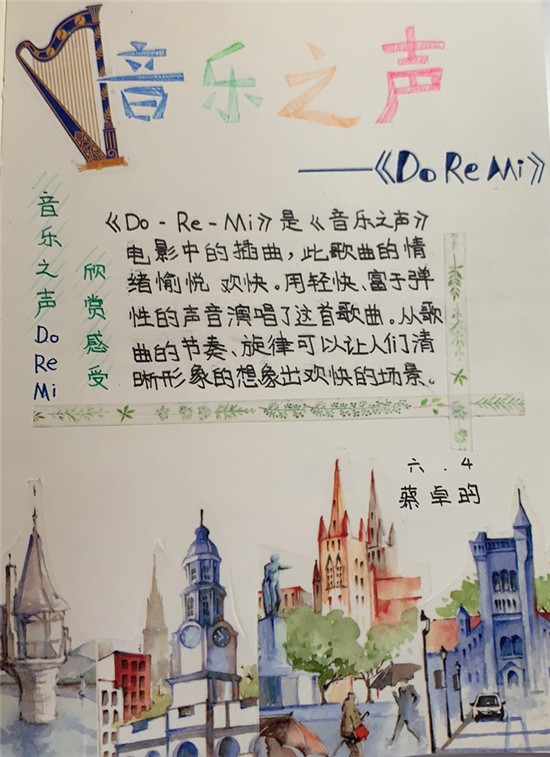 音乐之声
——《Do Re Mi》
音乐之声Do Re Mi
欣赏感受
《Do-Re-Mi》是《音乐之声》
电影中的插曲,此歌曲的情
绪愉悦 欢快。用轻快、富于弹
性的声音演唱了这首歌曲。从歌
曲的节奏、旋律可以让人们清
晰形象的想象出欢快的场景。
六.4
蔡卓昀